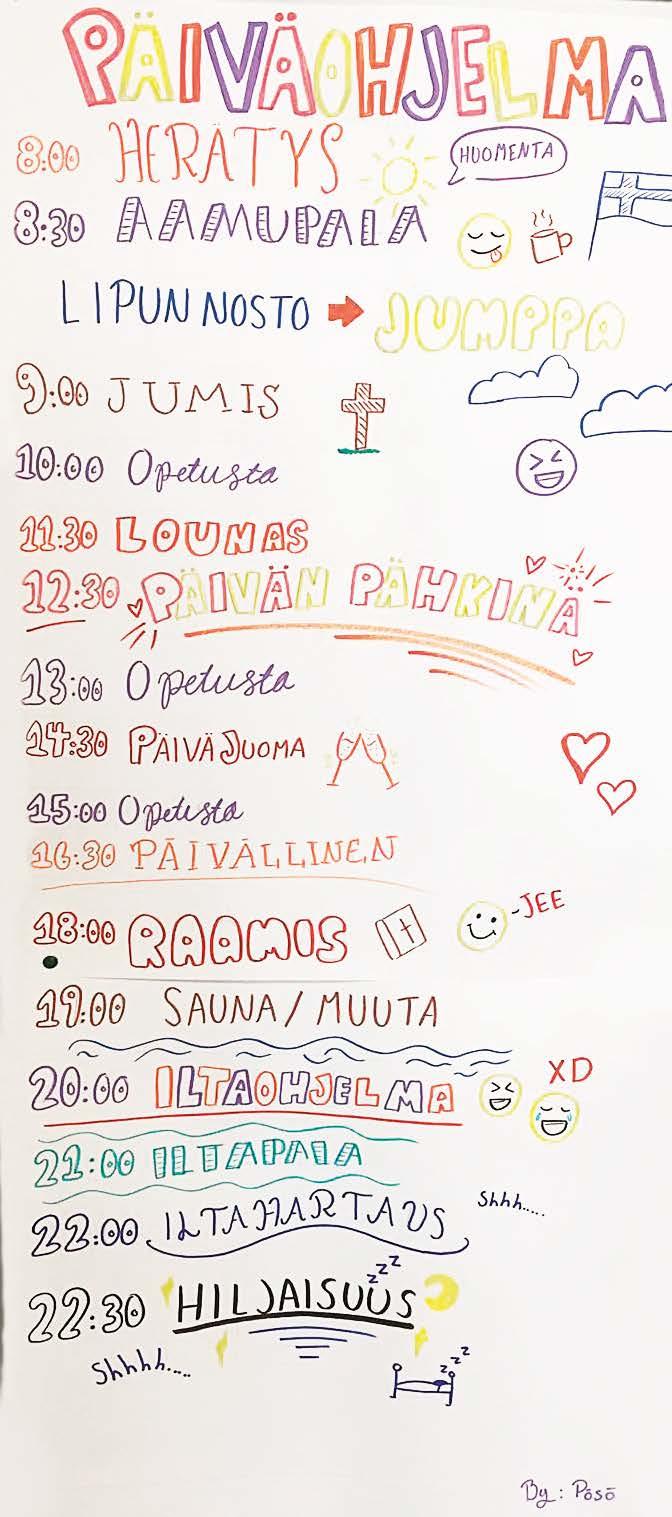 PÄIVÄOHJELMA
8:00 HERÄTYS HUOMENTA
8:30 AAMUPALA
LIPUN NOSTO → JUMPPA
9:00 JUMIS
10:00 Opetusta
11:30 LOUNAS
12:30 PÄIVÄN PÄHKINÄ
13:00 Opetusta
14:30 PÄIVÄJUOMA
15:00 Opetusta
16:30 PÄIVÄLLINEN
18:00 RAAMIS -JEE
19:00 SAUNA/MUUTA
20:00 ILTAOHJELMA XD
21:00 ILTAPALA
22:00 ILTAHARTAUS Shhh.....
22:30 HILJAISUUS zzz
Shhhh.... zzz
By: Pösö